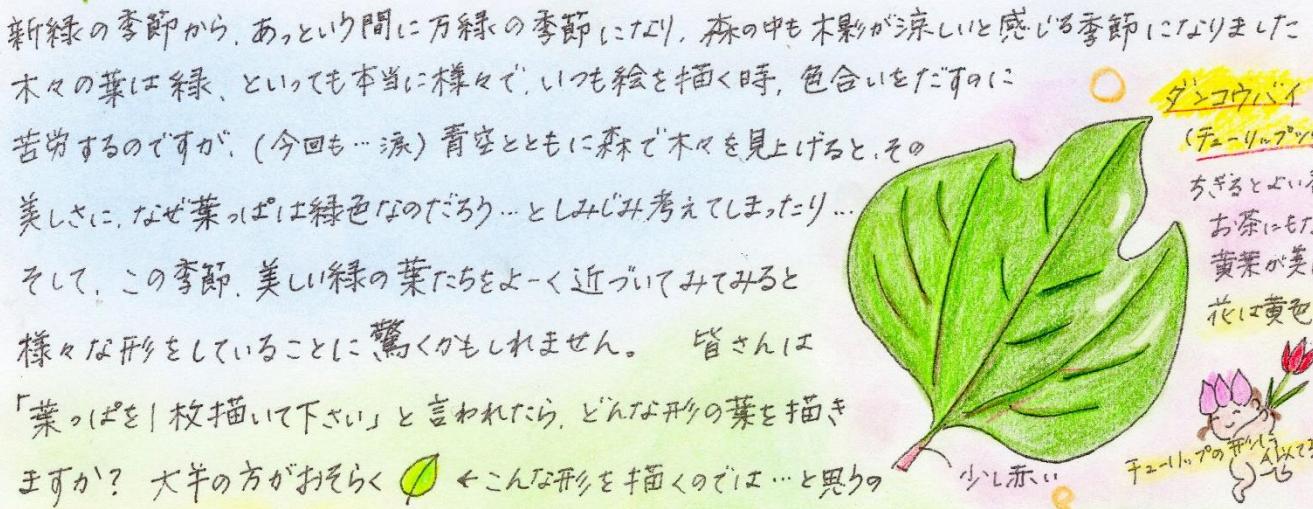 新緑の季節から、あっという間に万緑の季節になり、森の中も木影が涼しいと感じる季節になりました
木々の葉は緑、といっても本当に様々で、いつも絵を描く時、色合いをだすのに
苦労するのですが、(今回も…涙)青空とともに森で木々を見上げると、その
美しさに、なぜ葉っぱは緑色なのだろう…としみじみ考えてしまったり…
そして、この季節、美しい緑の葉たちをよーく近づいてみてみると
様々な形をしていることに驚くかもしれません。 皆さんは
「葉っぱを1枚描いて下さい」と言われたら、どんな形の葉を描き
ますか? 大半の方がおそらく ←こんな形を描くのでは…と思うの
ダンコウバイ
(チューリップツ
ちぎるとよい
お茶にも
黄葉が美
花は黄色
少し赤い
チューリップの形に
似てる